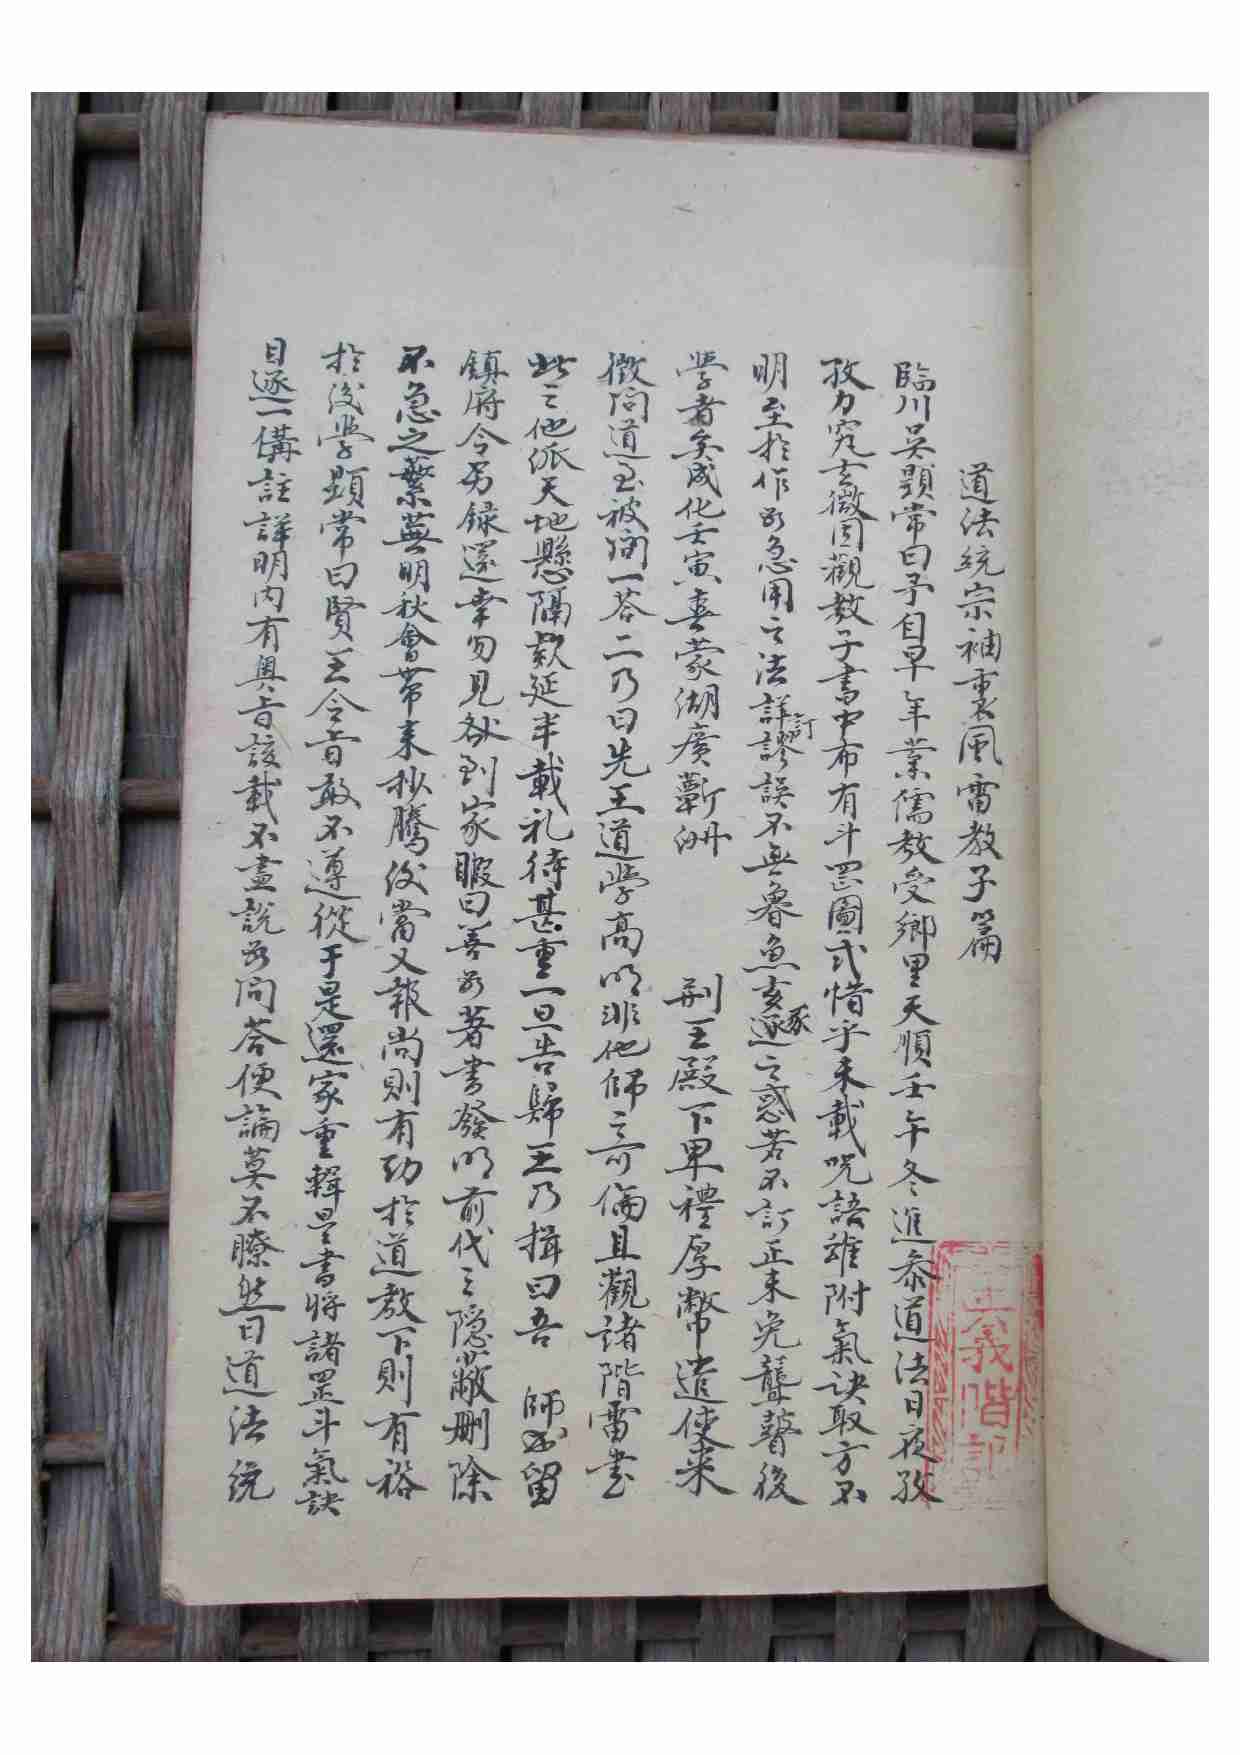 道法統宗袖裏風雷教子篇
臨川吴顯常曰予自早年業儒教受鄉里天順壬午冬進叅道法日夜孜
孜力究玄微因觀教子書中布有斗罡圖式惜乎未載咒語雖附氣訣取方不
明至於作用急用之法詳訂謬誤不無魯魚亥豕之惑若不訂正未免聾瞽後
學者矣成化壬寅春蒙湖廣蘄州 荆王殿下卑禮厚幣遣使来
徵問道至彼問一荅二乃曰先王道學高明非他師之可倫且觀諸階雷書
此之他派天地懸隔欵延半載礼待甚重一旦告歸王乃揖曰吾 師必留
鎮府今另録還幸勿見秘到家暇日善為著書發明前代之隐蔽删除
不急之蘩蕪明秋會帶来抄騰後當又報尚則有功於道教下則有裕
於後學顯常曰賢王令旨敢不遵從于是還家重輯是書將諸罡斗氣訣
目逐一備註詳明内有奥旨該載不盡説為問荅便論莫不瞭然曰道法統
義階記